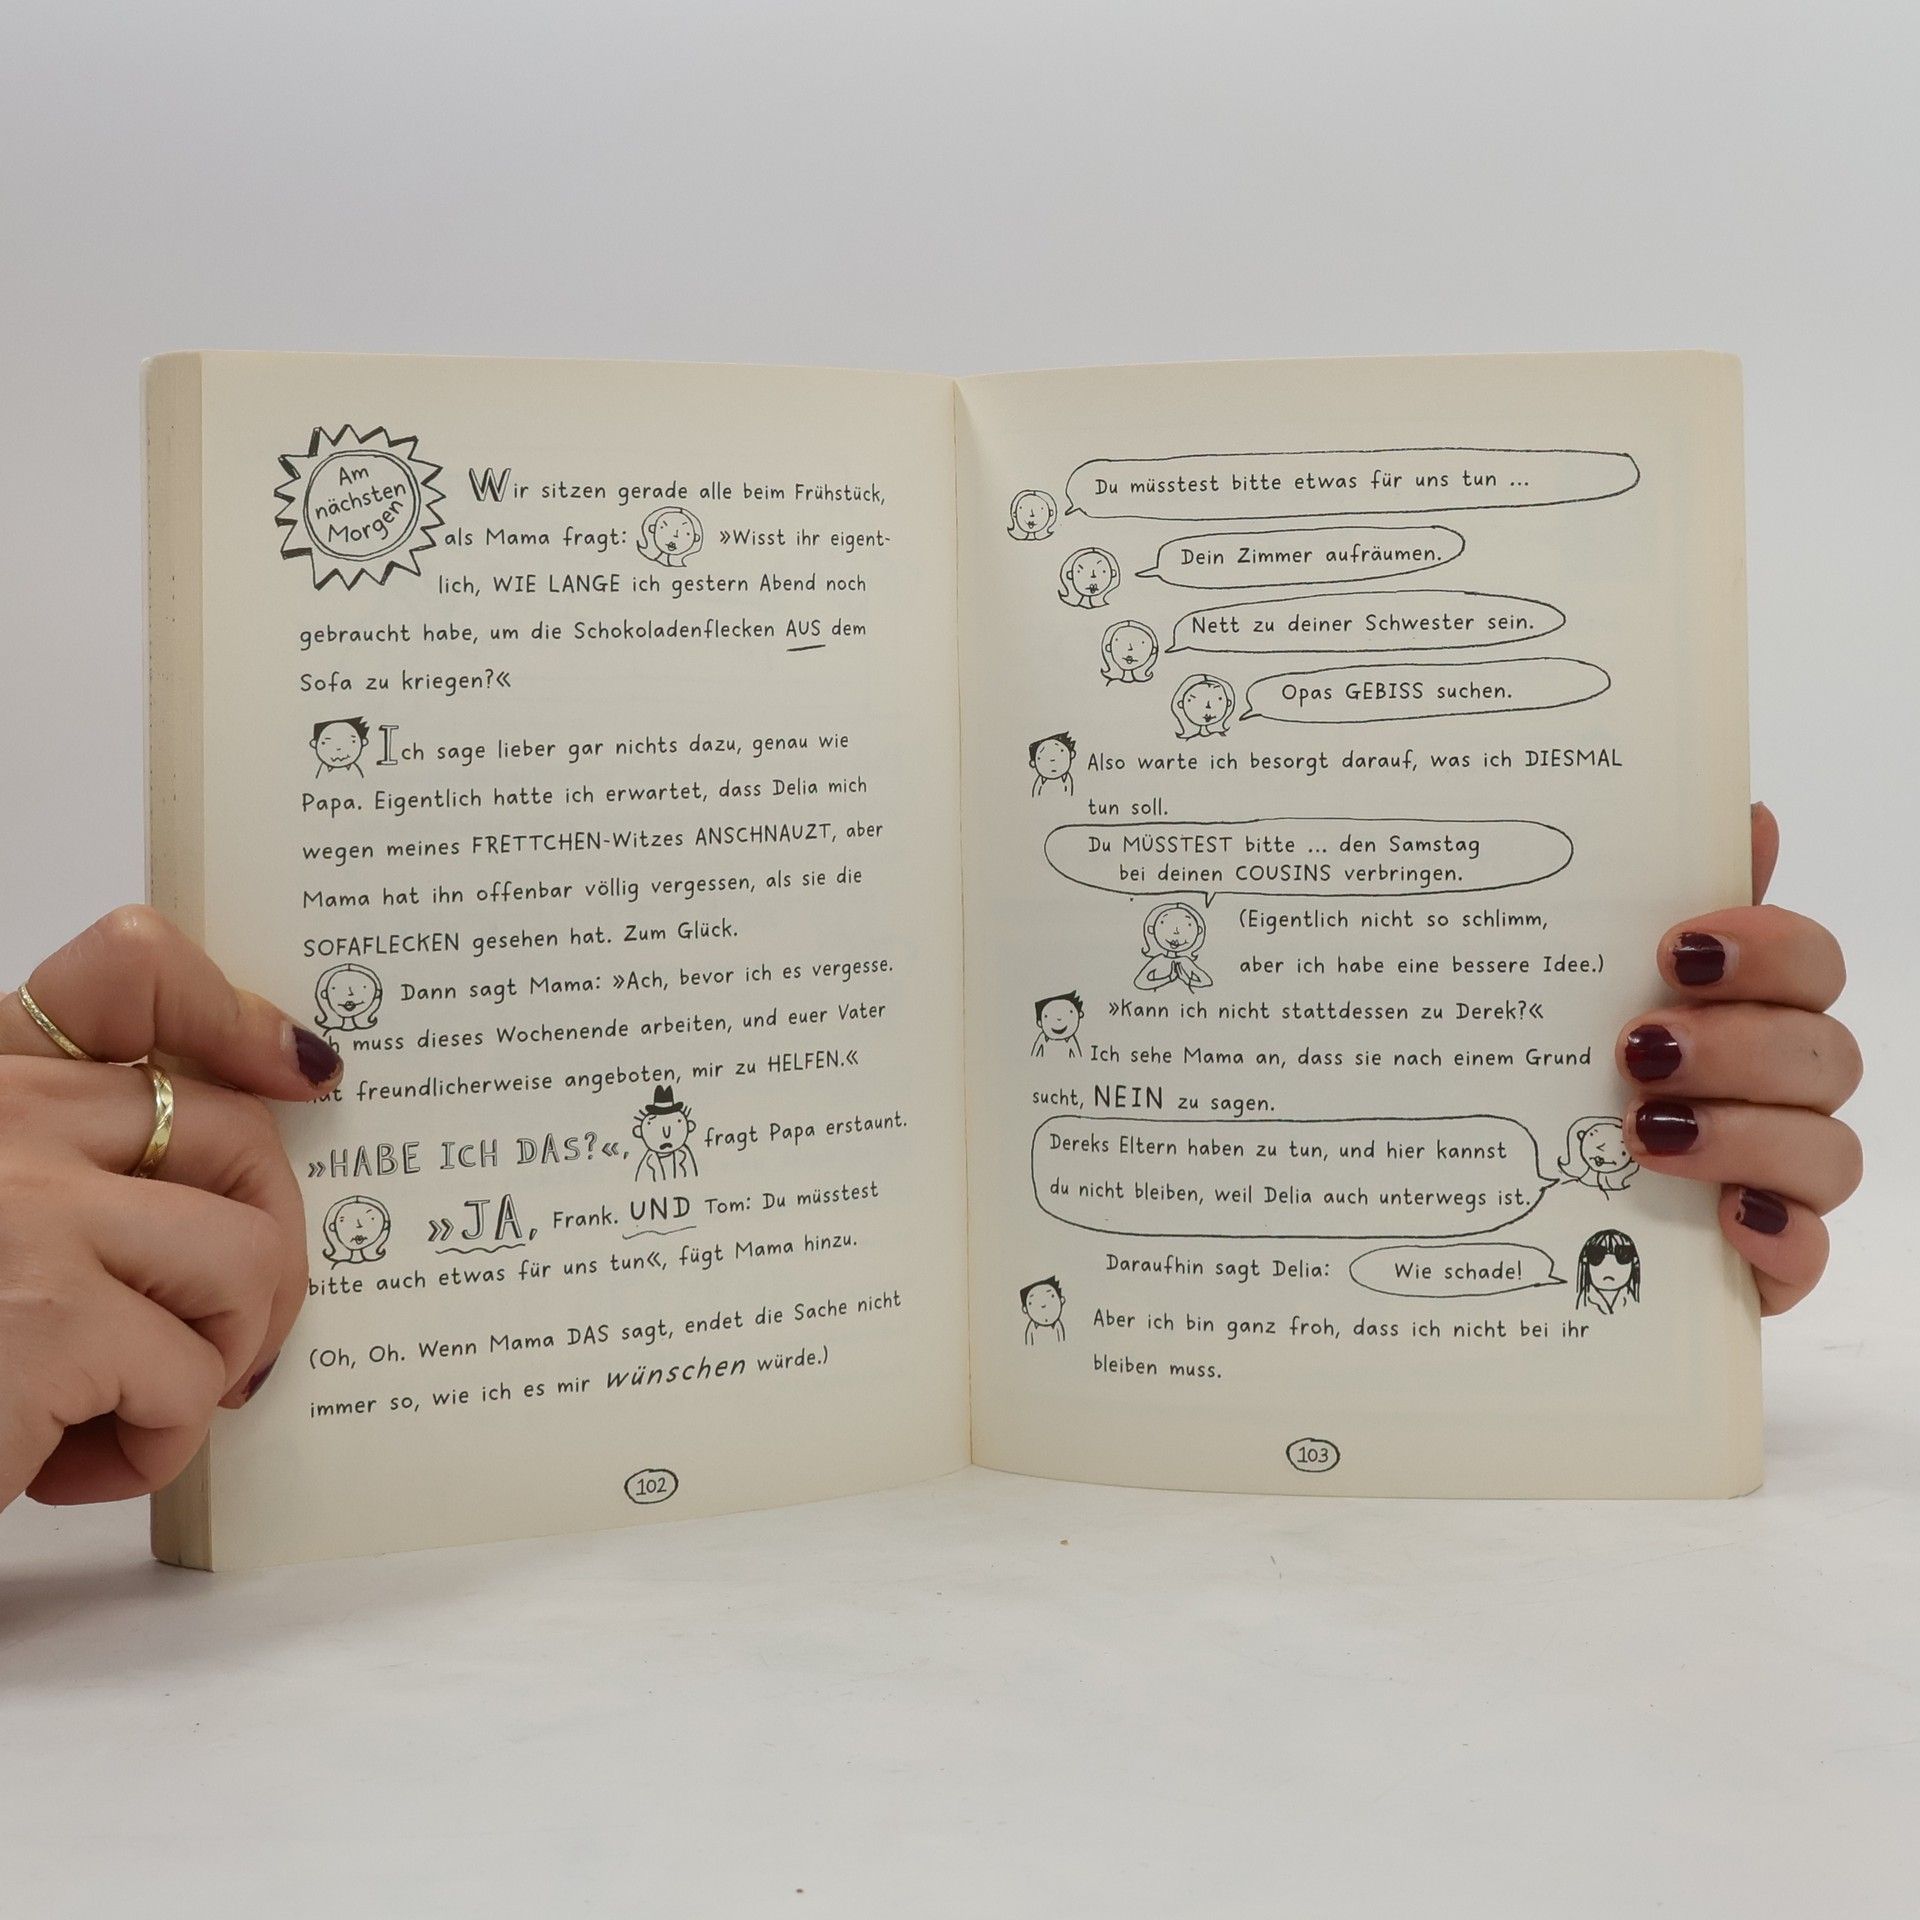 Am
nächsten
Morgen
Wir sitzen gerade alle beim Frühstück,
als Mama fragt: »Wisst ihr eigent-
lich, WIE LANGE ich gestern Abend noch
gebraucht habe, um die Schokoladenflecken AUS dem
Sofa zu kriegen?«
Ich sage lieber gar nichts dazu, genau wie
Papa. Eigentlich hatte ich erwartet, dass Delia mich
wegen meines FRETTCHEN-Witzes ANSCHNAUZT, aber
Mama hat ihn offenbar völlig vergessen, als sie die
SOFAFLECKEN gesehen hat. Zum Glück.
Dann sagt Mama: »Ach, bevor ich es vergesse.
muss dieses Wochenende arbeiten, und euer Vater
freundlicherweise angeboten, mir zu HELFEN.«
»HABE ICH DAS?«, fragt Papa erstaunt.
»JA, Frank. UND Tom: Du müsstest
bitte auch etwas für uns tun«, fügt Mama hinzu.
(Oh, Oh. Wenn Mama DAS sagt, endet die Sache nicht
immer so, wie ich es mir wünschen würde.)
102
Du müsstest bitte etwas für uns tun ...
Dein Zimmer aufräumen.
Nett zu deiner Schwester sein.
Opas GEBISS suchen.
Also warte ich besorgt darauf, was ich DIESMAL
tun soll.
Du MÜSSTEST bitte ... den Samstag
bei deinen COUSINS verbringen.
(Eigentlich nicht so schlimm,
aber ich habe eine bessere Idee.)
»Kann ich nicht stattdessen zu Derek?«
Ich sehe Mama an, dass sie nach einem Grund
sucht, NEIN zu sagen.
Dereks Eltern haben zu tun, und hier kannst
du nicht bleiben, weil Delia auch unterwegs ist.
Daraufhin sagt Delia: Wie schade!
Aber ich bin ganz froh, dass ich nicht bei ihr
bleiben muss.
103